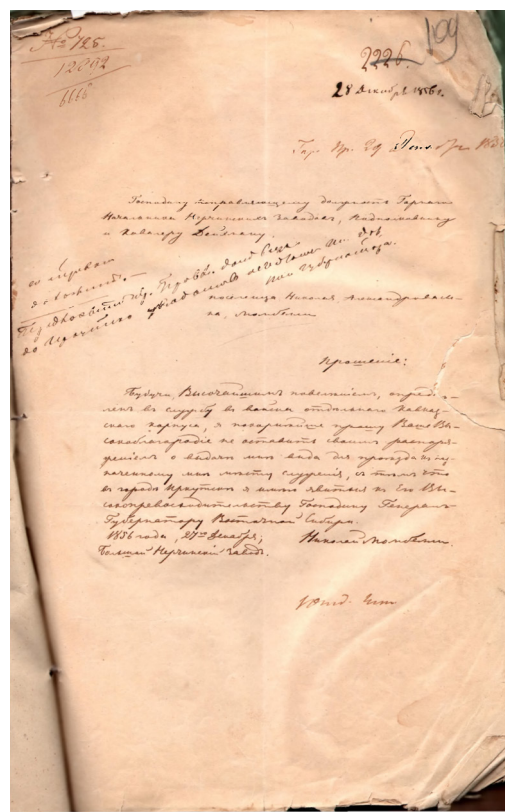 № 725.
12092
6666
109
2226.
28 Декабря 1856 г.
Господину исправляющему должность Горнаго
Начальника Нерчинских заводов, Подполковнику
и Кавалеру Дейхману.
поселенца Николая Александрова сы-
на, Момбелли
Прошение:
Будучи, Высочайшим повелением, опреде-
лен в службу в войска отдельного Кавказ-
ского корпуса, я покорнейше прошу Ваше Вы-
сокоблагородие не оставить своим распоря-
жением о выдаче мне вида для проезда к на-
значенному мне месту служения, с тем что
в городе Иркутске я имею явиться к Его Вы-
сокопревосходительству Господину Генерал-
Губернатору Восточной Сибири.
1856 года, 27го Декабря,
Николай Момбелли.
Большой Нерчинский Завод.